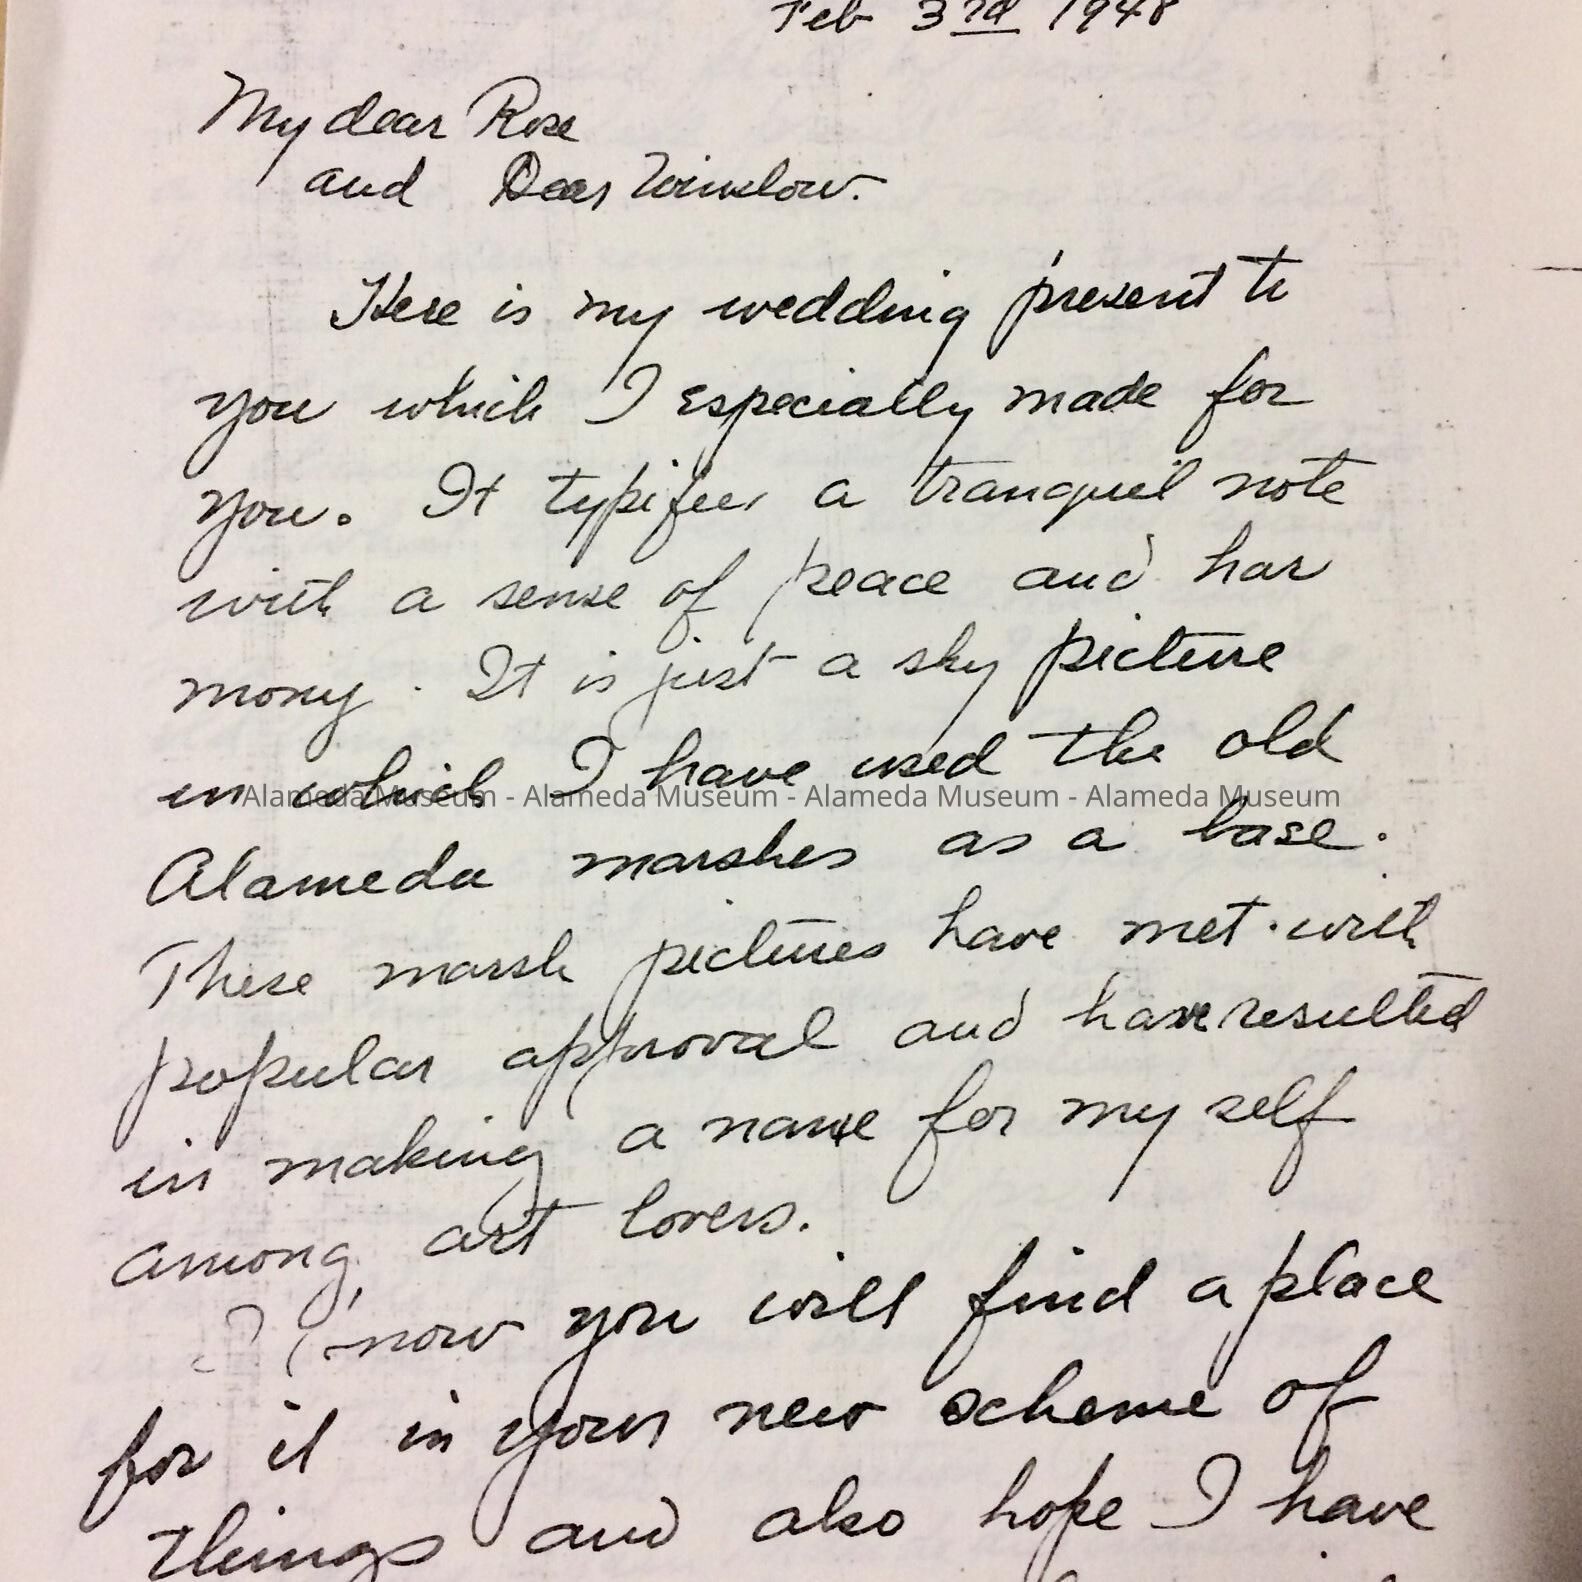 Feb 3rd 1948
My dear Rose
and Dear Winslow.
Here is my wedding present to
you which I especially made for
you. It typifies a tranquil note
with a sense of peace and har
mony. It is just a sky picture
in which I have used the old
Alameda Museum - Alameda Museum - Alameda Museum - Alameda Museum
Alameda marshes as a base.
These marsh pictures have met with
popular approval and have resulted
in making a name for my self
among art lovers.
I know you will find a place
for it in your new scheme of
things and also hope I have